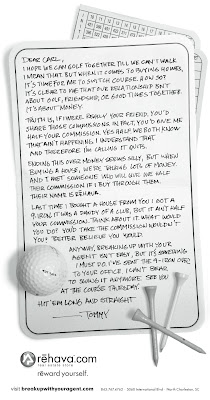 DEAR CARL,
I HOPE WE CAN GOLF TOGETHER TILL WE CAN'T WALK
I MEAN THAT. BUT WHEN IT COMES TO BUYING HOMES,
IT'S TIME FOR ME TO SWITCH COURSE. HOW SO?
IT'S CLEAR TO ME THAT OUR RELATIONSHIP ISN'T
ABOUT GOLF, FRIENDSHIP, OR GOOD TIMES TOGETHER.
IT'S ABOUT MONEY.
TRUTH IS, IF I WERE REALLY YOUR FRIEND, YOU'D
SHARE THOSE COMMISSIONS. IN FACT, YOU'D GIVE ME
HALF YOUR COMMISSION. YES HALF. WE BOTH KNOW
THAT AIN'T HAPPENING. I UNDERSTAND THAT
AND THEREFORE I'M CALLING IT QUITS.
ENDING THIS OVER MONEY SEEMS SILLY, BUT WHEN
BUYING A HOUSE, WE'RE TALKING LOTS OF MONEY.
AND I MET SOMEONE WHO WILL GIVE ME HALF
THEIR COMMISSION IF I BUY THROUGH THEM.
THEIR NAME IS RĒHAVA.
LAST TIME I BOUGHT A HOUSE FROM YOU I GOT A
9 IRON. IT WAS A DANDY OF A CLUB, BUT IT AIN'T HALF
YOUR COMMISSION. THINK ABOUT IT. WHAT WOULD
YOU DO? YOU'D TAKE THE COMMISSION WOULDN'T
YOU? BETTER BELIEVE YOU WOULD.
ANYWAY, BREAKING UP WITH YOUR
AGENT ISN'T EASY, BUT IT'S SOMETHING
I MUST DO. I'VE SENT THE 9-IRON
TO YOUR OFFICE. I CAN'T BEAR
TO SWING IT ANYMORE. SEE YOU
AT THE COURSE THURSDAY.
HIT 'EM LONG AND STRAIGHT
- TOMMY
rēhava.com
real estate store
rēward yourself.
visit breakupwithyouragent.com